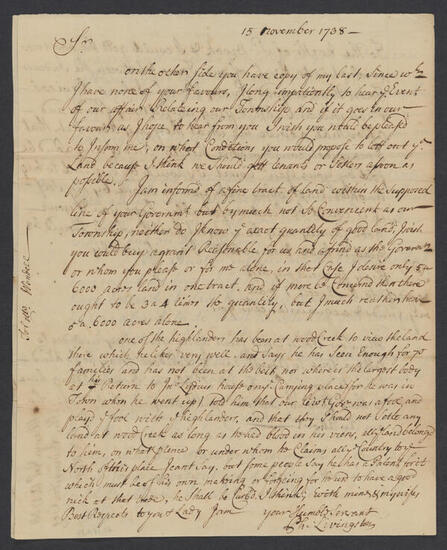 15 November 1738 -
Sr
on the other Side you have Copy of my last, Since wch
I have none of your favours, I long impatiently to hear ye Event
of our affair Relateing our Township and if it goes in our
favour as I hope to hear from you I wish you would be pleased
to Inform me, on what Conditions you would propose to lett out ye
Land because I think we Should gett tenants or Setlers as soon as
possible.
I am informd of a fine tract of land within the Supposed
line of your Goverment but by much not So Convenient as our
Township, neither do I know ye exact quantity of good land, I wish
you would buy a grant Reasonable for us and a friend as the
or whom you please or for me alone, in that Case I desire only 5 a
6000 acres land in one tract. And if more be Concernd then there
ought to be 3 a 4 times the quantity, but I much reather have
5 a 6000 acres alone.
one of the highlanders has been at wood Creek to view the land
there which he likes very well, and Says he has Seen Enough for
families and has not been at the best nor where is the largest body
at his Return to Jno Lydius house on ye Carrying place for he was in
Town when he went up told him that our was a foole and
playd ye foole with ye highlanders, and that they Should not Setle any
land at wood Creek as long as he had blood in his veins, all ye land belongd
to him, on what pretence or under whom he Claims all ye Country to ye
North of this place I cant Say, but some people Say he has a Patent for it
which must be of his own making or forgeing for he usd to have a good
nick at that trade, he Shall be Curbd I think; with mine & my wifes
Best Respects to you & Lady I am your Humble Servant
Ph: Livingston